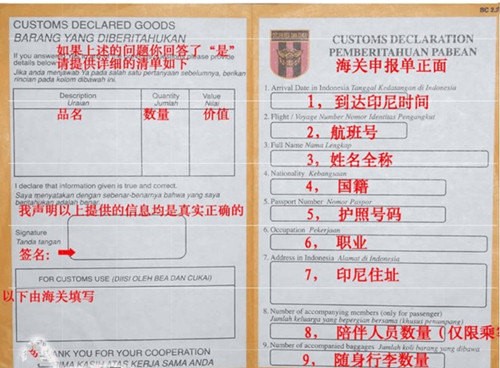 BC 2.2
CUSTOMS DECLARED GOODS
BARANG YANG DIBERITAHUKAN
如果上述的问题你回答了“是”
请提供详细的清单如下
If you answered
please provide
details below
Jika anda menjawab Ya pada salah satu pertanyaan sebelumnya, berikan
rincian pada kolom dibawah ini.
Description Quantity Value
Uraian Jumlah Nilai
品名 数量 价值
I declare that information given is true and correct.
Saya menyatakan dengan sebenar-benarnya bahwa yang saya
beritahukan adalah benar.
我声明以上提供的信息均是真实正确的
Signature
Tanda tangan
签名:
FOR CUSTOMS USE (DIISI OLEH BEA DAN CUKAI)
以下由海关填写
THANK YOU FOR YOUR COOPERATION
TERIMA KASIH ATAS KERJA SAMA ANDA
CUSTOMS DECLARATION
PEMBERITAHUAN PABEAN
海关申报单正面
1. Arrival Date in Indonesia Tanggal Kedatangan di Indonesia
1, 到达印尼时间
2. Flight / Voyage Number Nomor Identitas Pengangkut
2, 航班号
3. Full Name Nama Lengkap
3, 姓名全称
4. Nationality Kebangsaan
4, 国籍
5. Passport Number Nomor Paspor
5, 护照号码
6. Occupation Pekerjaan
6, 职业
7. Address in Indonesia Alamat di Indonesia
7, 印尼住址
8. Number of accompanying members (only for passenger)
Jumlah keluarga yang bepergian bersama (khusus penumpang)
8, 陪伴人员数量(仅限乘客
9. Number of accompanied baggages Jumlah koli barang yang dibawa
9, 随身行李数量